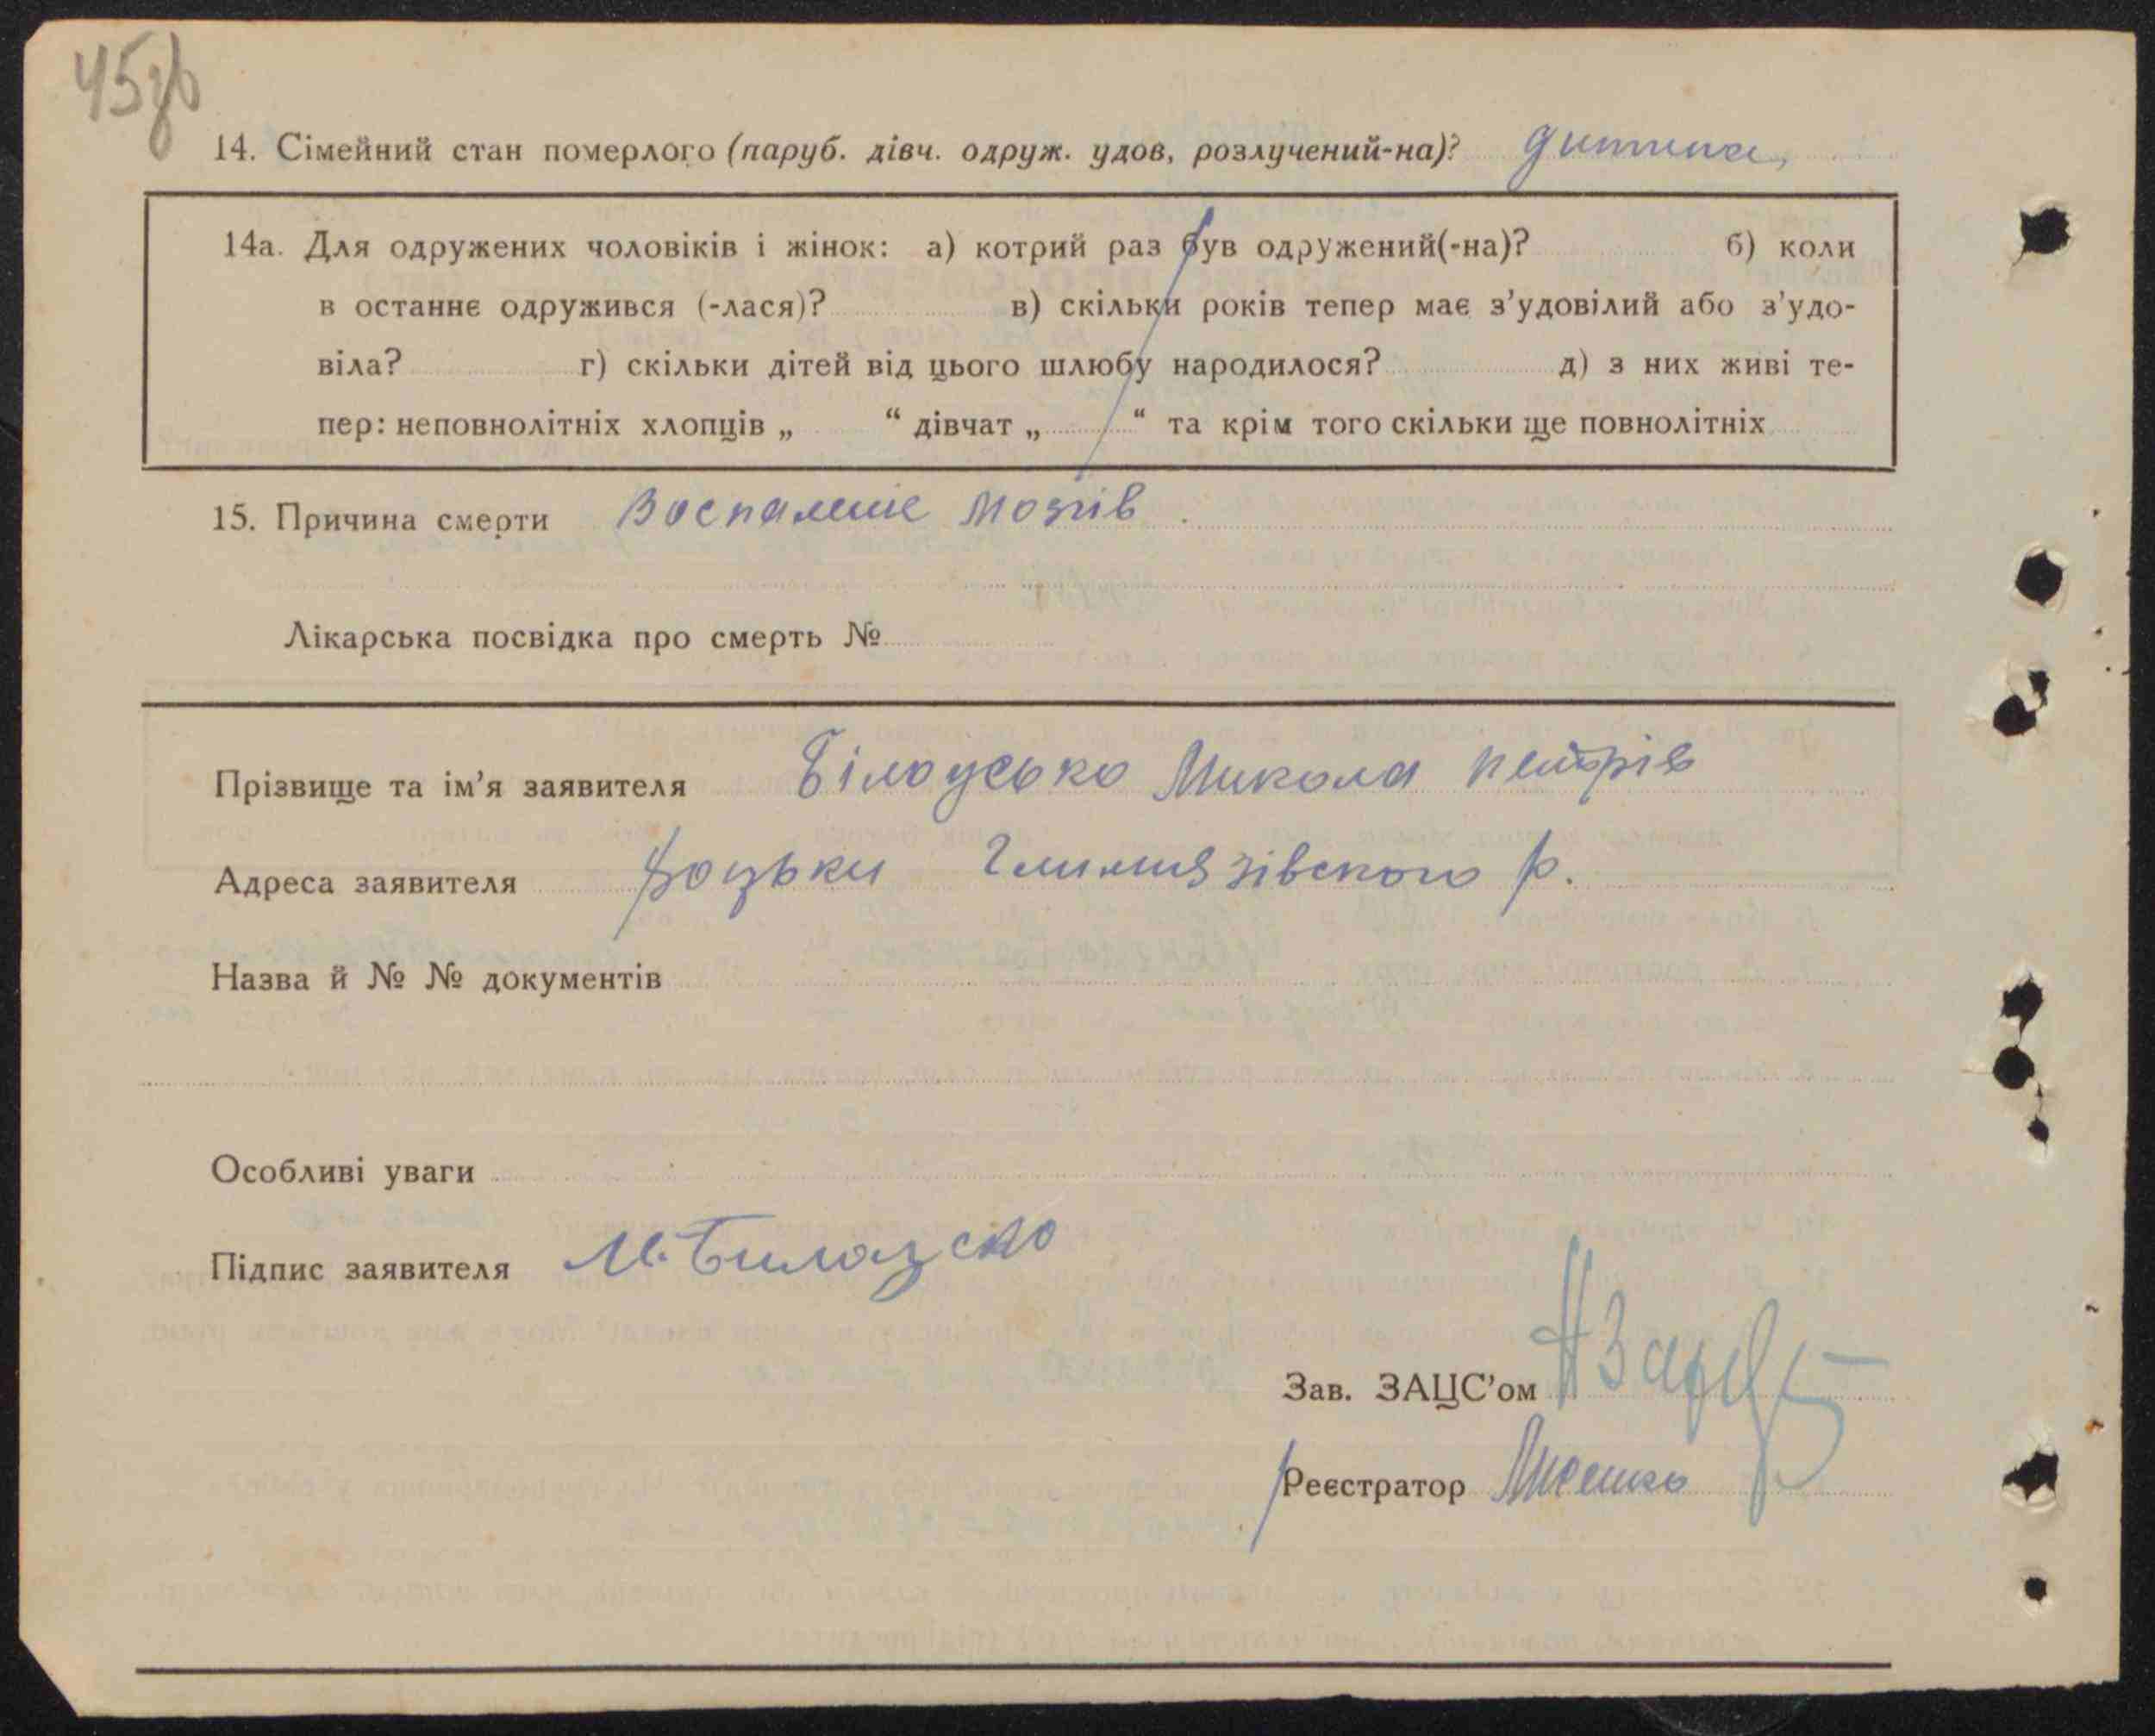 45зв
14. Сімейний стан померлого (паруб. дівч. одруж. удов, розлучений-на)? дитина,
14а. Для одружених чоловіків і жінок: а) котрий раз був одружений(-на)? б) коли
в останнє одружився (-лася)? в) скільки років тепер має з’удовілий або з’удо-
віла? г) скільки дітей від цього шлюбу народилося? д) з них живі те-
пер: неповнолітніх хлопців „ “ дівчат „ “ та крім того скільки ще повнолітніх
15. Причина смерти Воспаленіє мозгів
Лікарська посвідка про смерть №
Прізвище та ім’я заявителя Білоусько Микола петрів
Адреса заявителя Гилмязівского р.
Назва й № № документів
Особливі уваги
Підпис заявителя М. Билоуско
Зав. ЗАЦС’ом
Реєстратор Лисенко